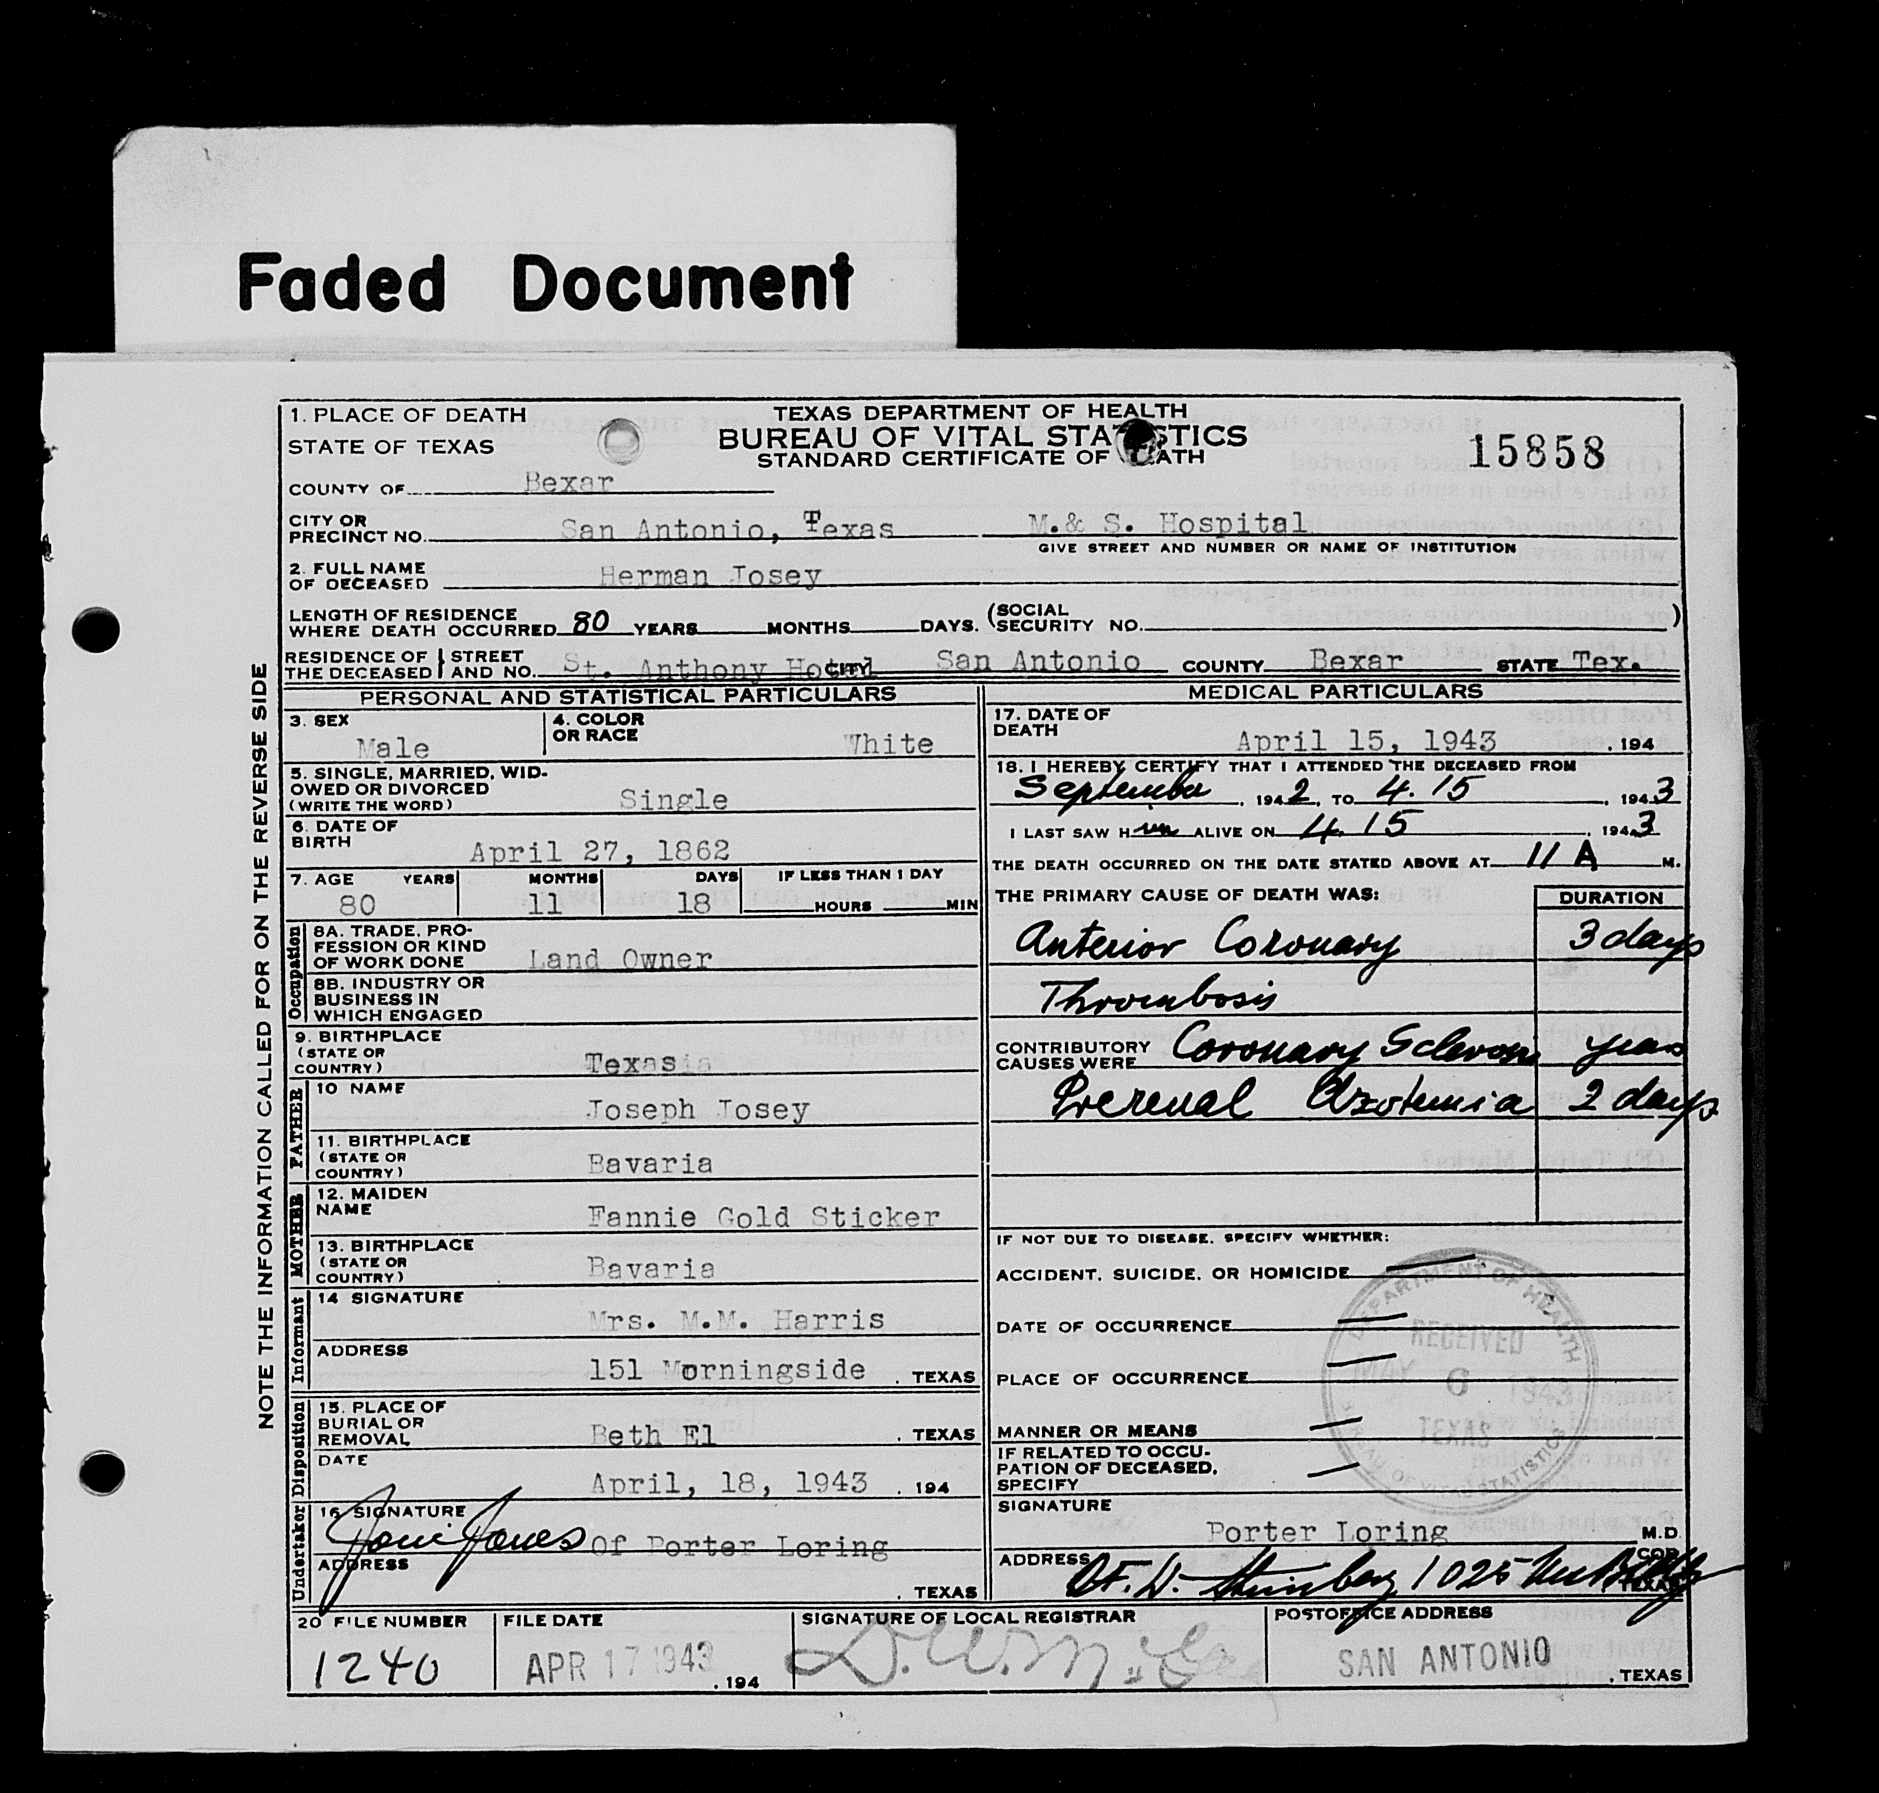 Faded Document
1. PLACE OF DEATH
STATE OF TEXAS
TEXAS DEPARTMENT OF HEALTH
BUREAU OF VITAL STATISTICS
STANDARD CERTIFICATE OF DEATH
15858
COUNTY OF Bexar
CITY OR PRECINCT NO. San Antonio, Texas M.& S. Hospital
GIVE STREET AND NUMBER OR NAME OF INSTITUTION
2. FULL NAME OF DECEASED Herman Josey
LENGTH OF RESIDENCE WHERE DEATH OCCURRED 80 YEARS MONTHS DAYS. (SOCIAL SECURITY NO. )
RESIDENCE OF THE DECEASED } STREET AND NO. St. Anthony Hotel CITY San Antonio COUNTY Bexar STATE Tex.
NOTE THE INFORMATION CALLED FOR ON THE REVERSE SIDE
PERSONAL AND STATISTICAL PARTICULARS
3. SEX Male
4. COLOR OR RACE White
5. SINGLE, MARRIED, WIDOWED OR DIVORCED
(WRITE THE WORD) Single
6. DATE OF BIRTH April 27, 1862
7. AGE YEARS MONTHS DAYS IF LESS THAN 1 DAY
80 11 18 HOURS MIN
Occupation
8A. TRADE, PROFESSION OR KIND OF WORK DONE Land Owner
8B. INDUSTRY OR BUSINESS IN WHICH ENGAGED
9. BIRTHPLACE (STATE OR COUNTRY) Texas
FATHER
10 NAME Joseph Josey
11. BIRTHPLACE (STATE OR COUNTRY) Bavaria
MOTHER
12. MAIDEN NAME Fannie Gold Sticker
13. BIRTHPLACE (STATE OR COUNTRY) Bavaria
Informant
14 SIGNATURE Mrs. M.M. Harris
ADDRESS 151 Morningside , TEXAS
Disposition
15. PLACE OF BURIAL OR REMOVAL Beth El , TEXAS
DATE April, 18, 1943 , 194
Undertaker
16 SIGNATURE Of Porter Loring
ADDRESS , TEXAS
MEDICAL PARTICULARS
17. DATE OF DEATH April 15, 1943 , 194
18. I HEREBY CERTIFY THAT I ATTENDED THE DECEASED FROM
September , 1942, TO 4.15 , 1943
I LAST SAW Him ALIVE ON 4.15 , 1943
THE DEATH OCCURRED ON THE DATE STATED ABOVE AT 11 A M.
THE PRIMARY CAUSE OF DEATH WAS: DURATION
Anterior Coronary 3 days
Thrombosis
CONTRIBUTORY CAUSES WERE Coronary Sclerosis years
Prerenal Azotemia 2 days
IF NOT DUE TO DISEASE, SPECIFY WHETHER:
ACCIDENT, SUICIDE, OR HOMICIDE —
DATE OF OCCURRENCE —
PLACE OF OCCURRENCE —
MANNER OR MEANS —
IF RELATED TO OCCUPATION OF DECEASED, SPECIFY —
DEPARTMENT OF HEALTH
RECEIVED
MAY 6 1943
TEXAS
BUREAU OF VITAL STATISTICS
SIGNATURE Porter Loring M.D.
ADDRESS 1025 TEXAS
20 FILE NUMBER 1240
FILE DATE APR 17 1943 , 194
SIGNATURE OF LOCAL REGISTRAR
POSTOFFICE ADDRESS SAN ANTONIO , TEXAS